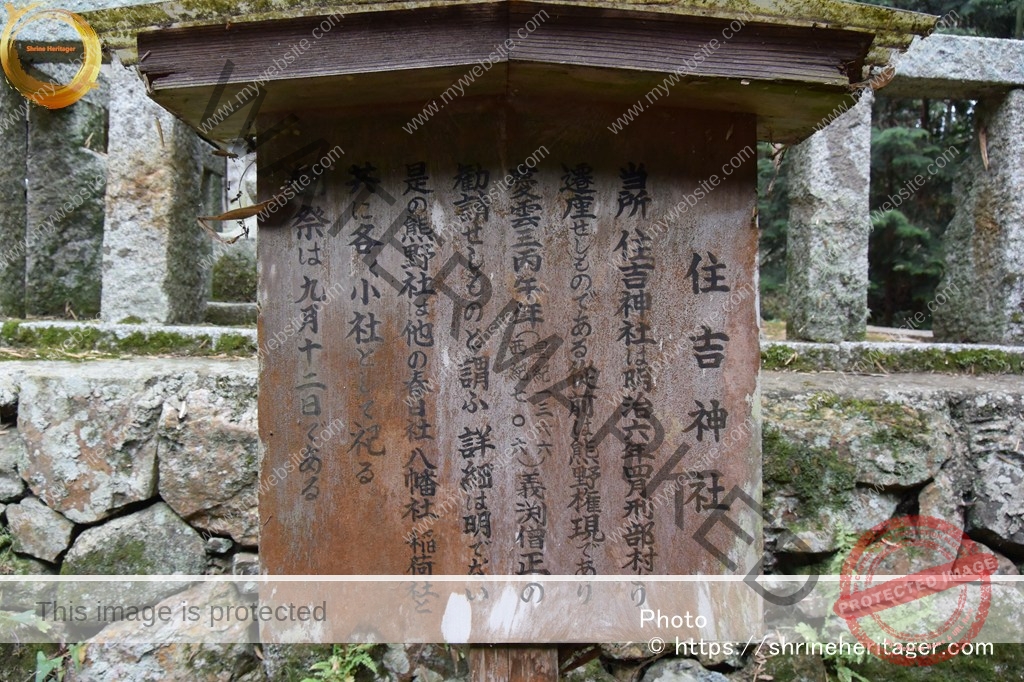 住吉神社
当所 住吉神社は明治六年四月刑部村より
遷座せしものである 従前は熊野権現であり
慶雲三丙午年(西紀七〇六)義渕僧正の
勧請せしものと謂ふ 詳細は明でない
是の熊野社は他の春日社八幡社稲荷社と
共に各〻小社として祀る
祭は九月十二日である
Shrine Heritager
WATERMARKED
www.mywebsite.com
PROTECTED IMAGE
This image is protected
Photo
© https://shrineheritager.com